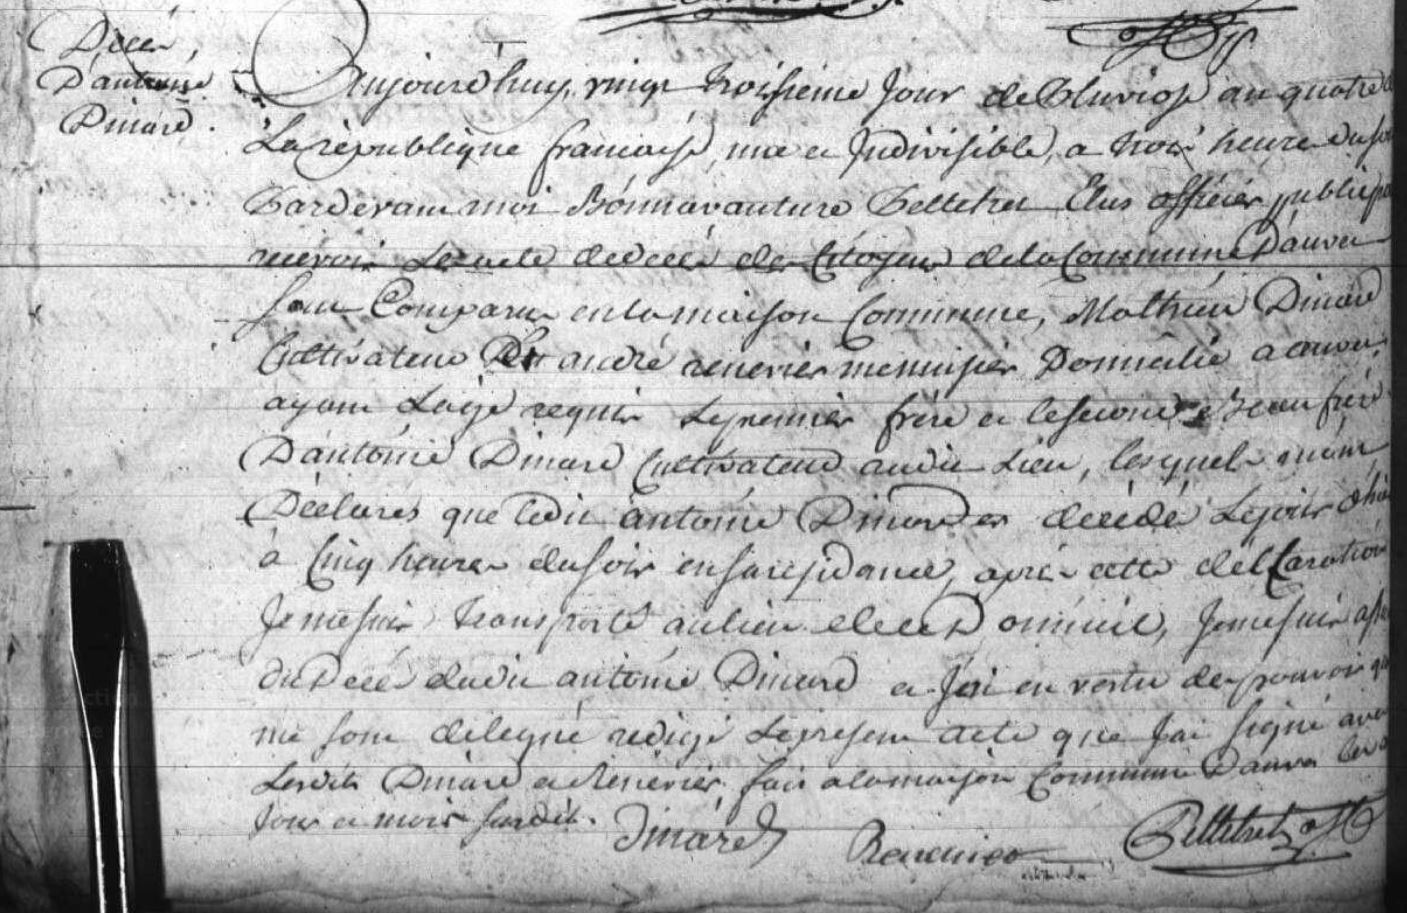 Décès
D'antoine
Dinard.
Aujourd'huy, vingt troisieme jour de Pluviose an quatre de
La république francaise, une et Indivisible, a trois heure du soir
Pardevant moi Bonnavanture Pelletret Elus officier public pour
recevoir les acte de décés des Citoyens de la Commune Dauvers
sont Comparu en la maison Commune, Mathieu Dinard
Cultivateur Et andré renevier menuisier Domicilié a auvers
ayant L'age requis Le premier frere et le second Beau frere
D'antoine Dinard Cultivateur audit Lieu, lesquels mont
Déclarés que ledit antoine Dinard est décédé Le jour d'hier
à Cinq heures du soir en sa residance, après cette déCLaration
Je me suis transporté au lieu de ce Domicile, Je me suis assuré
du Décé dudit antoine Dinard et Jai en vertu des pouvoir qui
me sont délégué redigé Le present acte que Jai signé avec
Lesdits Dinard et Renevier fait a la maison Commune Dauvers les
Jour et mois susdit.
Dinard Renevier Pelletret off